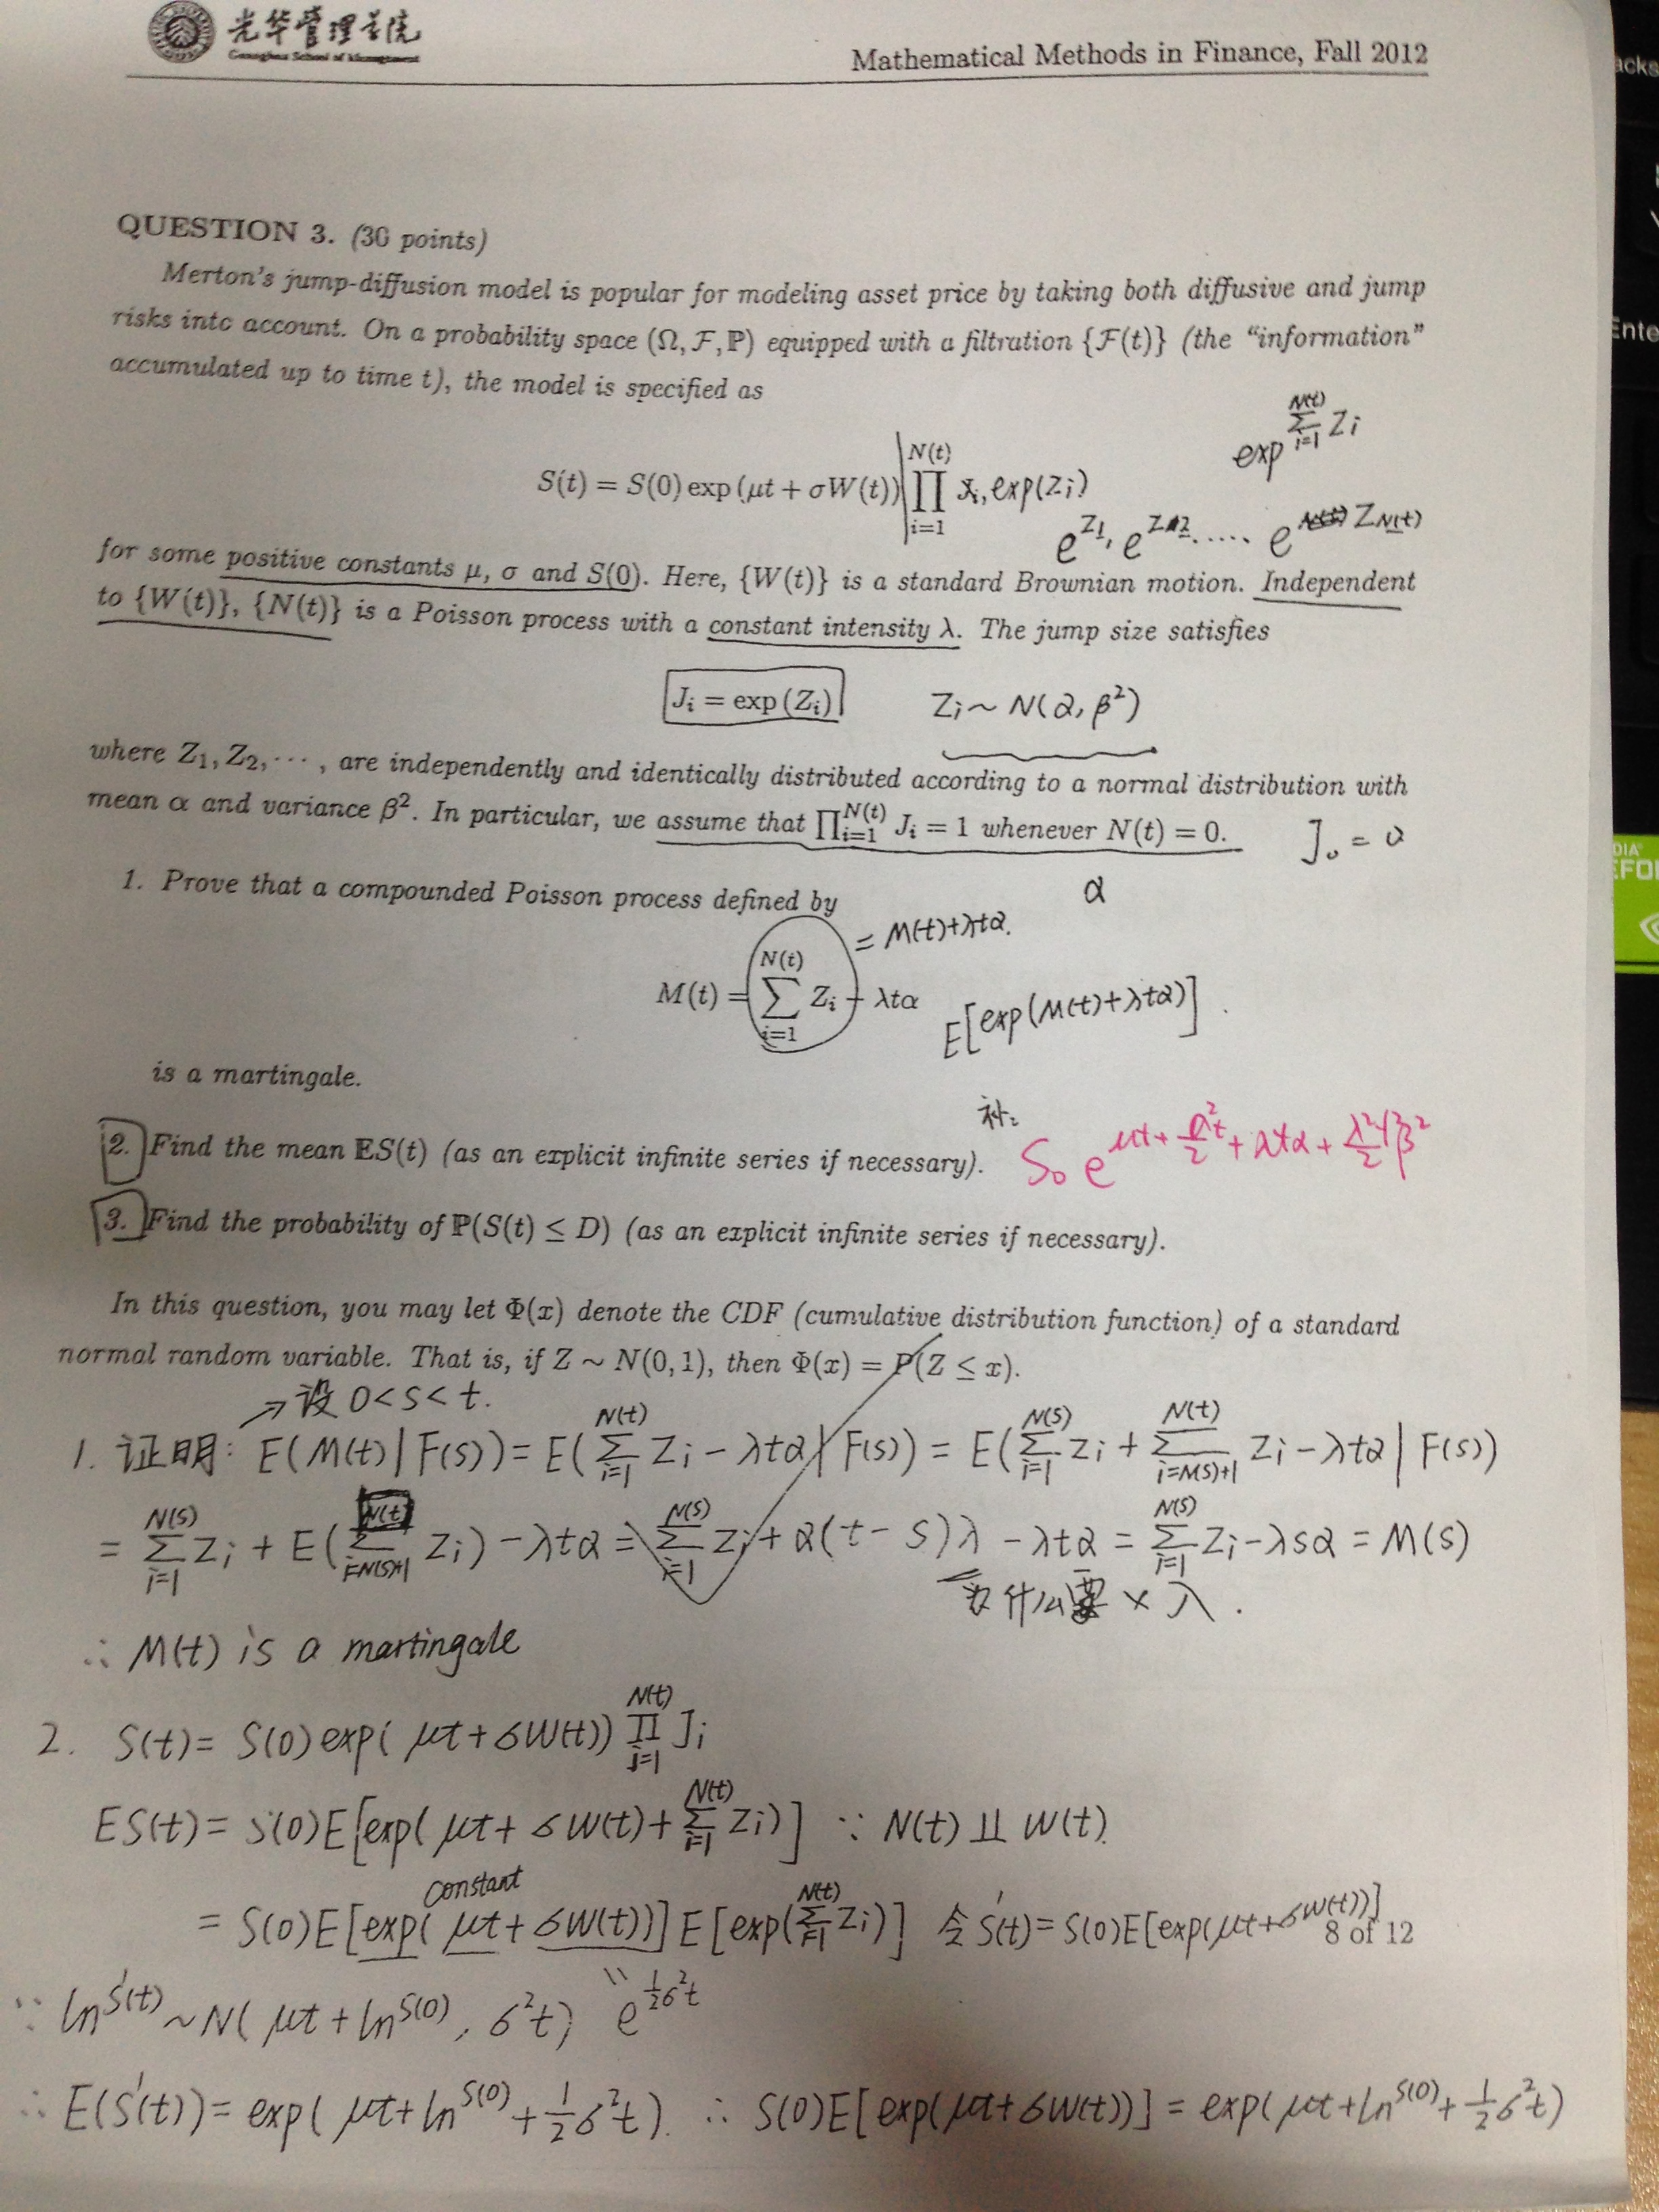 光华管理学院
Guanghua School of Management
Mathematical Methods in Finance, Fall 2012
QUESTION 3. (30 points)
Merton's jump-diffusion model is popular for modeling asset price by taking both diffusive and jump
risks into account. On a probability space (Ω, F, ℙ) equipped with a filtration {F(t)} (the "information"
accumulated up to time t), the model is specified as
exp^{∑_{i=1}^{N(t)} Zi}
S(t) = S(0) exp (μt + σW(t)) ∏_{i=1}^{N(t)} Ji, exp(Zi)
e^{Z1}, e^{Z2} ..... e^{Z_{N(t)}}
for some positive constants μ, σ and S(0). Here, {W(t)} is a standard Brownian motion. Independent
to {W(t)}, {N(t)} is a Poisson process with a constant intensity λ. The jump size satisfies
Ji = exp (Zi) Zi ~ N(α, β²)
where Z1, Z2, ⋯ , are independently and identically distributed according to a normal distribution with
mean α and variance β². In particular, we assume that ∏_{i=1}^{N(t)} Ji = 1 whenever N(t) = 0. J₀ = 0
1. Prove that a compounded Poisson process defined by α
= M(t)+λtα.
M(t) = ∑_{i=1}^{N(t)} Zi − λtα E[exp(M(t)+λtα)].
is a martingale.
补:
2. Find the mean 𝔼S(t) (as an explicit infinite series if necessary).
3. Find the probability of ℙ(S(t) ≤ D) (as an explicit infinite series if necessary).
In this question, you may let Φ(x) denote the CDF (cumulative distribution function) of a standard
normal random variable. That is, if Z ~ N(0, 1), then Φ(x) = P(Z ≤ x).
→设 0<s<t.
1. 证明: E(M(t)|F(s)) = E(∑_{i=1}^{N(t)} Zi − λtα | F(s)) = E(∑_{i=1}^{N(s)} Zi + ∑_{i=N(s)+1}^{N(t)} Zi − λtα | F(s))
= ∑_{i=1}^{N(s)} Zi + E(∑_{i=N(s)+1}^{N(t)} Zi) − λtα = ∑_{i=1}^{N(s)} Zi + α(t−s)λ − λtα = ∑_{i=1}^{N(s)} Zi − λsα = M(s)
为什么要×λ.
∴ M(t) is a martingale
2. S(t) = S(0) exp( μt + σW(t)) ∏_{i=1}^{N(t)} Ji
ES(t) = S(0)E[exp( μt + σW(t) + ∑_{i=1}^{N(t)} Zi)] ∵ N(t) ⫫ W(t).
constant
= S(0)E[exp( μt + σW(t))] E[exp(∑_{i=1}^{N(t)} Zi)] 令 S'(t) = S(0)E[exp(μt+σW(t))]
8 of 12
∵ ln^{S'(t)} ~ N( μt + ln^{S(0)}, σ²t) e^{½σ²t}
∴ E(S'(t)) = exp( μt + ln^{S(0)} + ½σ²t). ∴ S(0)E[exp(μt+σW(t))] = exp( μt + ln^{S(0)} + ½σ²t)